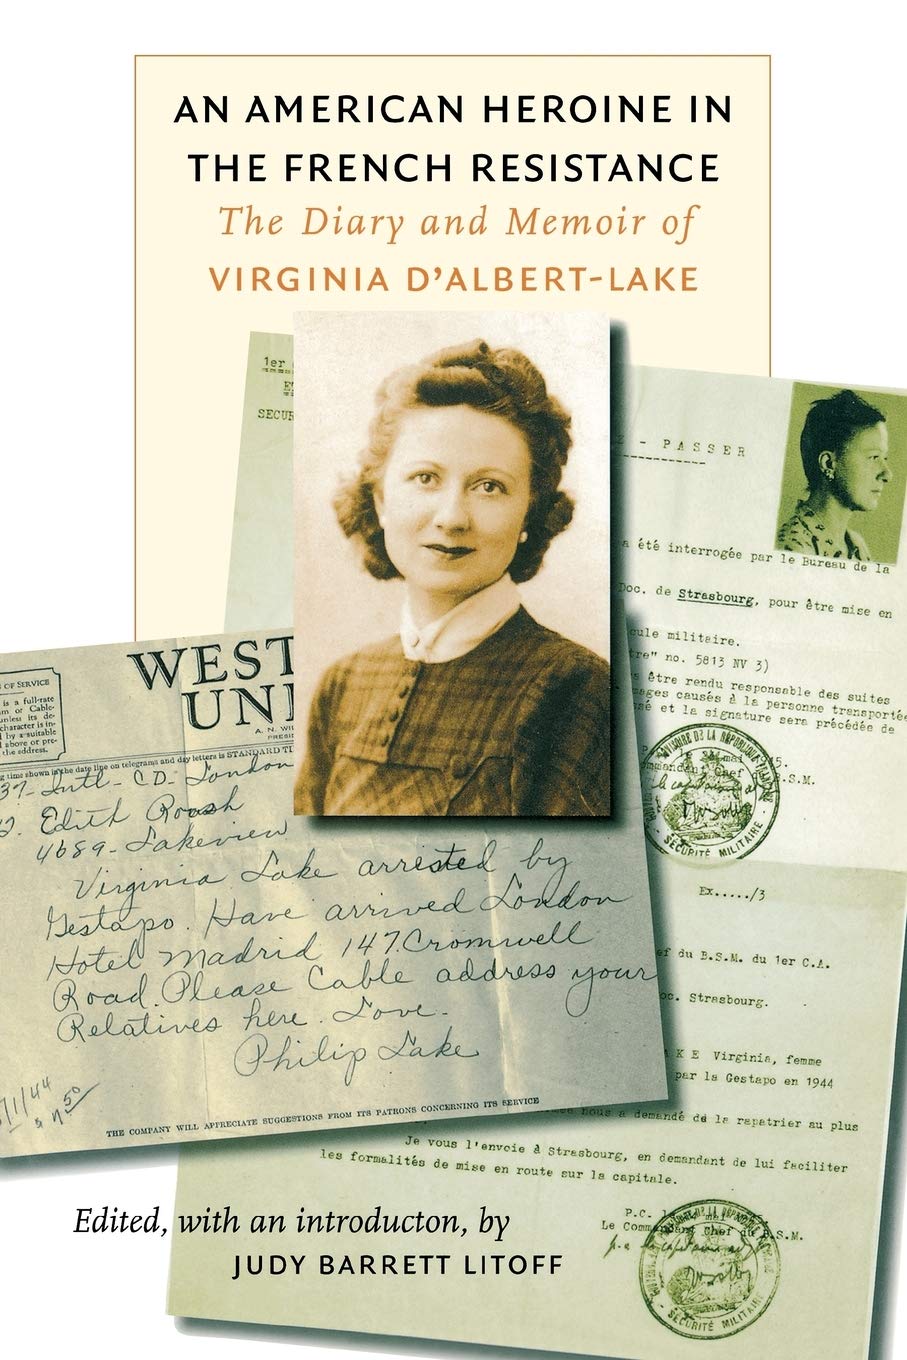 AN AMERICAN HEROINE IN
THE FRENCH RESISTANCE
The Diary and Memoir of
VIRGINIA D'ALBERT-LAKE
1er
SECUR
Z - PASSER
a été interrogée par le Bureau de la
Doc. de Strasbourg, pour être mise en
cule militaire.
tre" no. 5813 NV 3)
être rendu responsable des suites
mages causés à la personne transportée
sé et la signature sera précédée de
WEST
UNI
A. N. WI
PRESI
OF SERVICE
is a full-rate
m or Cable-
unless its de-
character is in-
by a suitable
above or pre-
the address.
g time shown in the date line on telegrams and day letters is STANDARD TI
37- Intl- CD- London
Edith Roush
4689- Lakeview
Virginia Lake arrested by
Gestapo. Have arrived London
Hotel Madrid 147 Cromwell
Road. Please Cable address your
Relatives here. Love-
Philip Lake
/1/44
THE COMPANY WILL APPRECIATE SUGGESTIONS FROM ITS PATRONS CONCERNING ITS SERVICE
SÉCURITÉ MILITAIRE
Ex...../3
ef du B.S.M. du 1er C.A.
oc. Strasbourg.
A K E Virginia, femme
par la Gestapo en 1944
nous a demandé de la rapatrier au plus
Je vous l'envoie à Strasbourg, en demandant de lui faciliter
les formalités de mise en route sur la capitale.
P.C.
Le Commandant Chef du B.S.M.
SÉCURITÉ MILITAIRE
Edited, with an introducton, by
JUDY BARRETT LITOFF